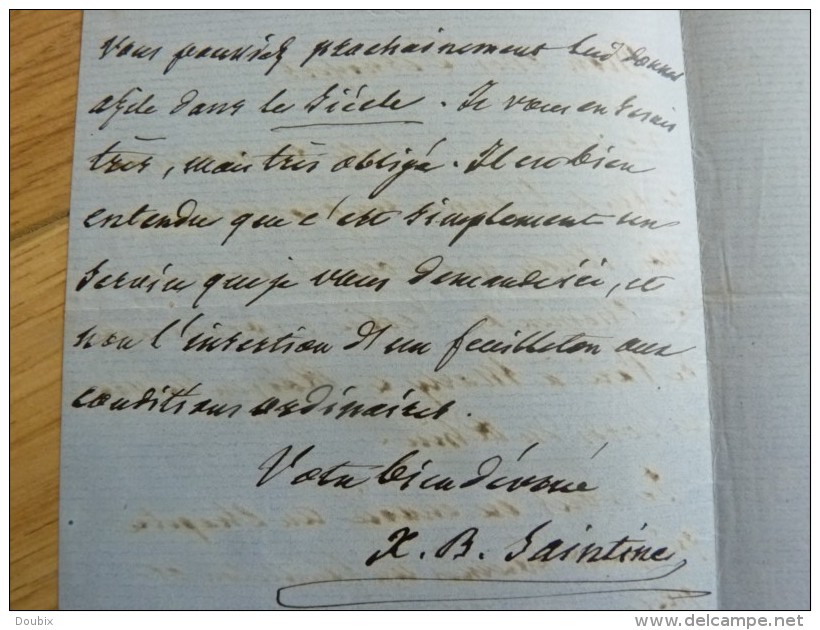 Vous pourriez prochainement lui donner
asyle dans le Siécle. Je vous en serais
très, mais très obligé. Il est bien
entendu que c'est simplement un
service que je vous demande ici, et
non l'insertion d'un feuilleton aux
conditions ordinaires.
Votre bien dévoué
X. B. Saintine
Doubix
www.delcampe.net